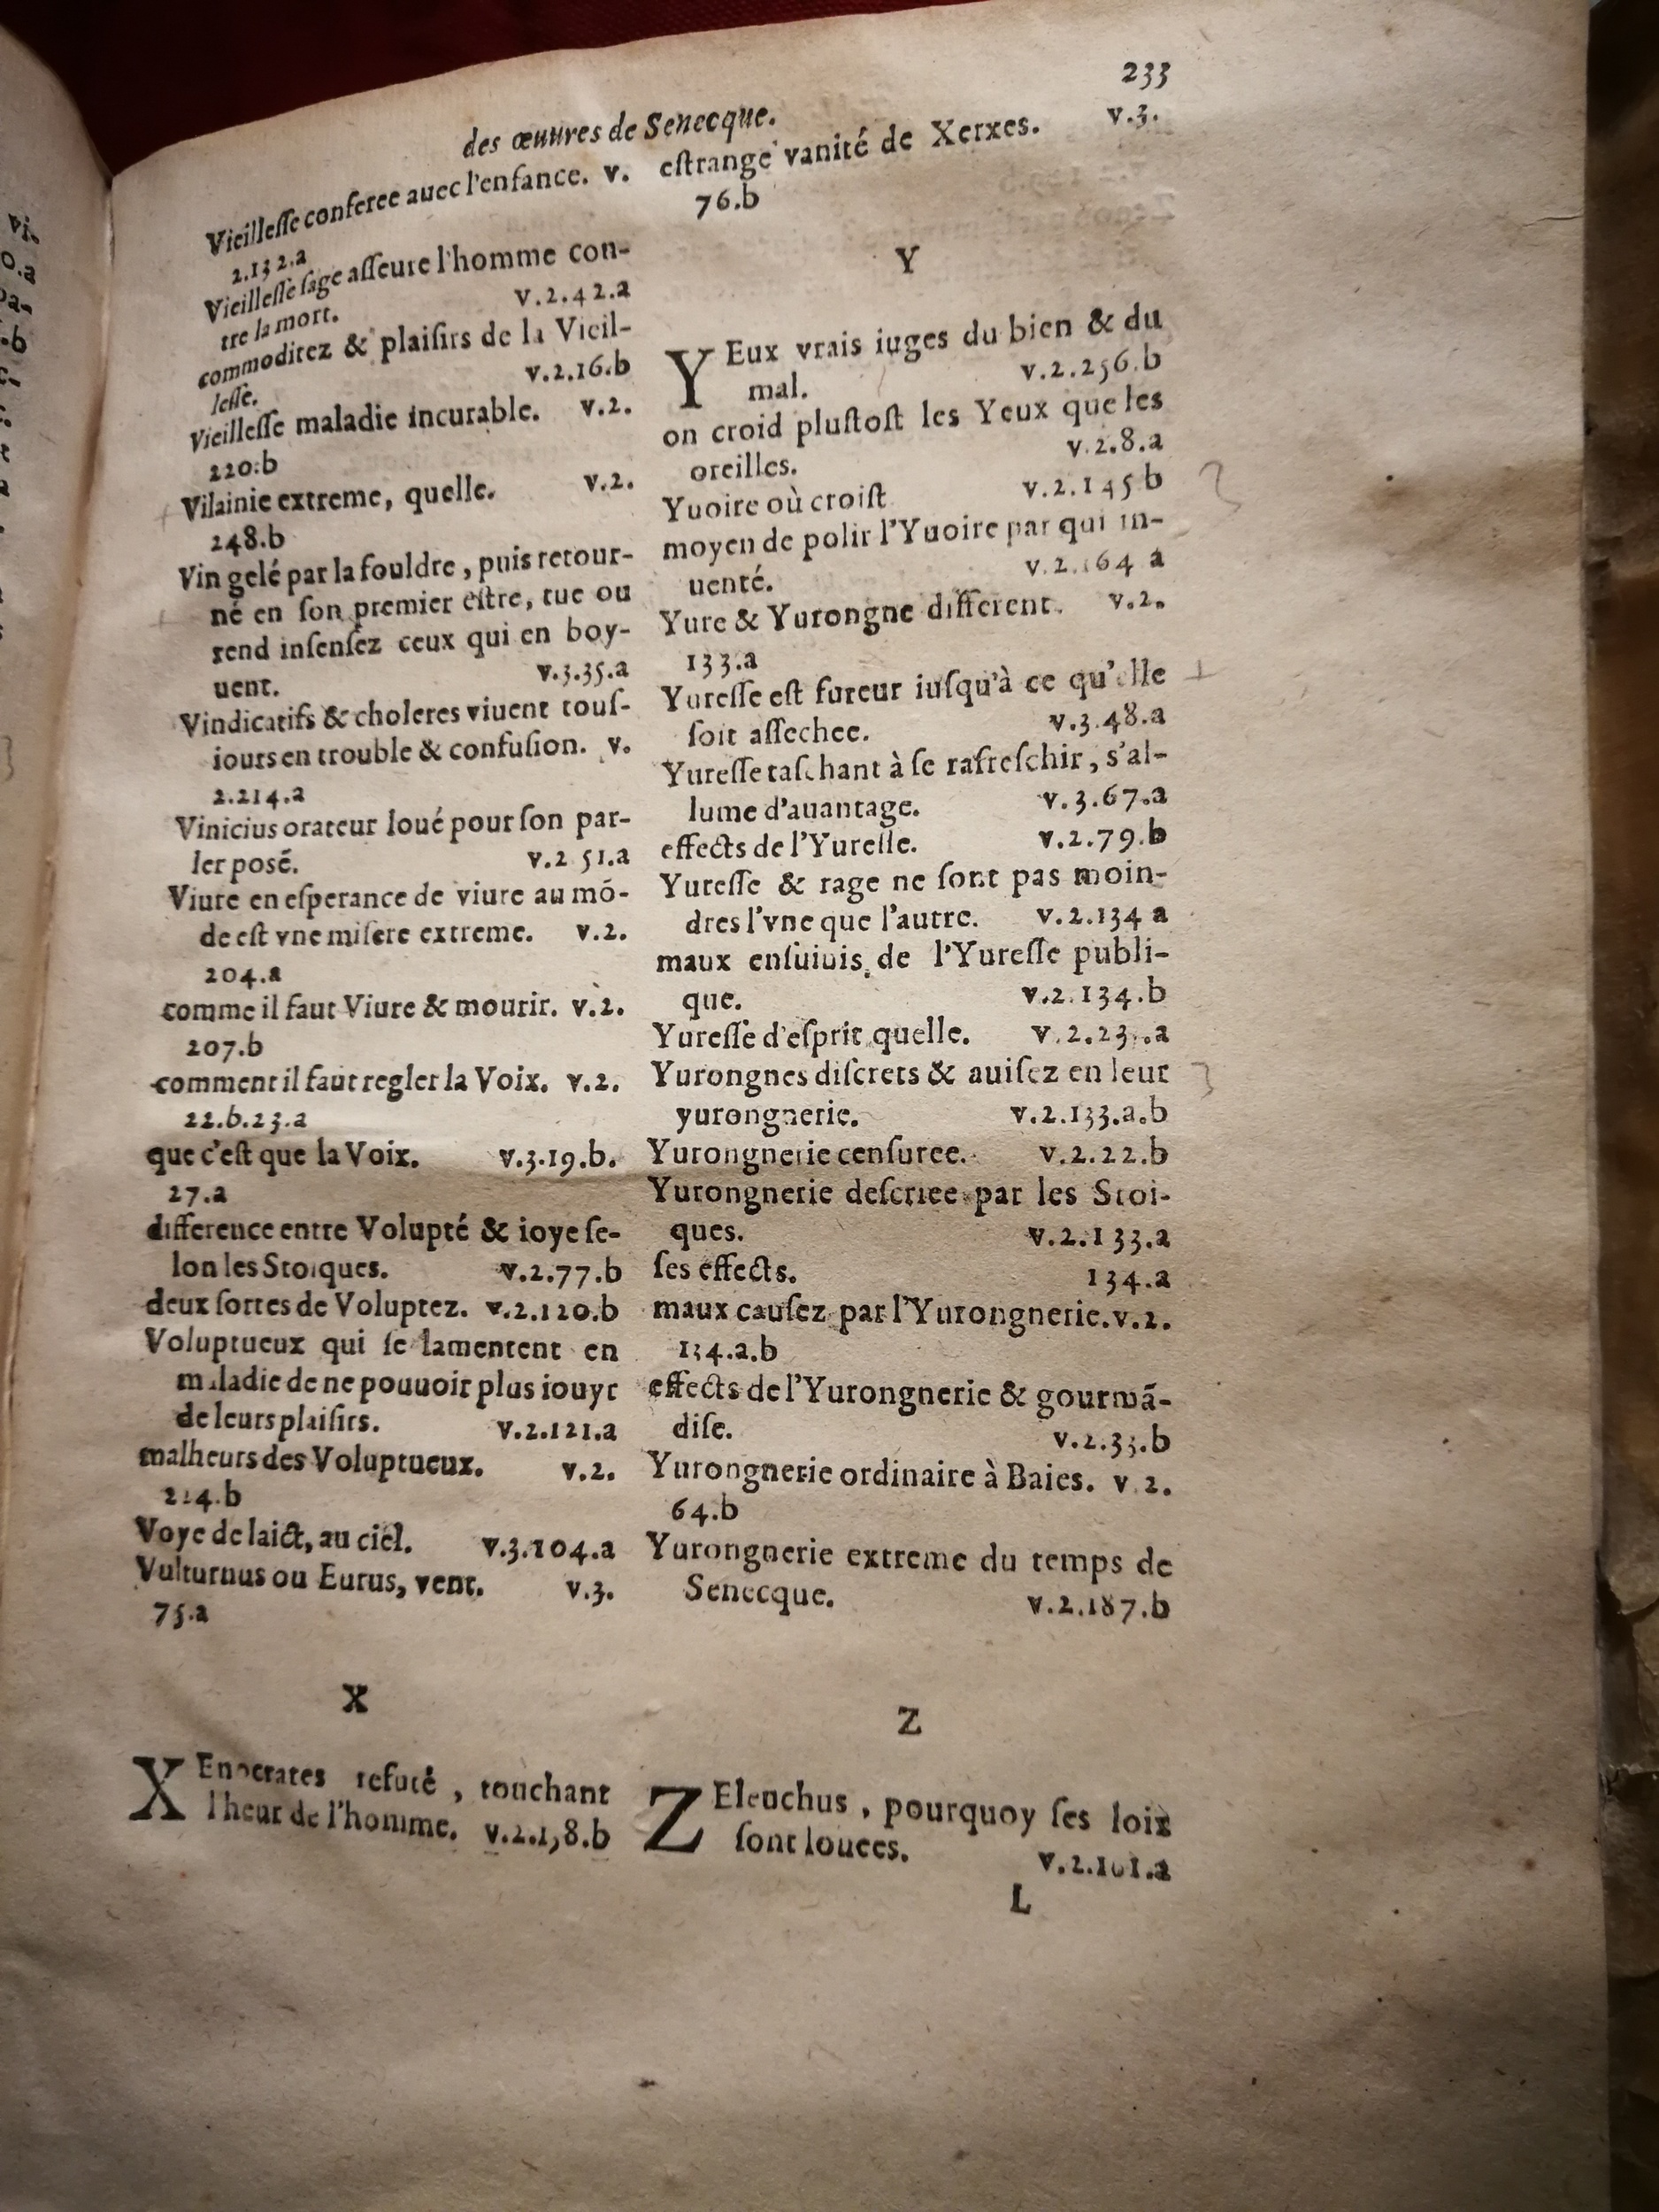 233
des œuures de Senecque.
Vieilleſſe conferee auec l'enfance. v.
2.132.a
Vieilleſſe ſage aſſeure l'homme con-
tre la mort. v.2.42.a
commoditez & plaiſirs de la Vieil-
leſſe. v.2.16.b
Vieilleſſe maladie incurable. v.2.
220.b
Vilainie extreme, quelle. v.2.
248.b
Vin gelé par la fouldre, puis retour-
né en ſon premier eſtre, tue ou
rend inſenſez ceux qui en boy-
uent. v.3.35.a
Vindicatifs & choleres viuent touſ-
iours en trouble & confuſion. v.
2.214.a
Vinicius orateur loué pour ſon par-
ler poſé. v.2 51.a
Viure en eſperance de viure au mõ-
de eſt vne miſere extreme. v.2.
204.a
comme il faut Viure & mourir. v.2.
207.b
comment il faut regler la Voix. v.2.
22.b.23.a
que c'eſt que la Voix. v.3.19.b.
27.a
difference entre Volupté & ioye ſe-
lon les Stoiques. v.2.77.b
deux ſortes de Voluptez. v.2.120.b
Voluptueux qui ſe lamentent en
maladie de ne pouuoir plus iouyr
de leurs plaiſirs. v.2.121.a
malheurs des Voluptueux. v.2.
Voye de laict, au ciel. v.3.104.a
Vulturnus ou Eurus, vent. v.3.
75.a
X
XEnocrates refuté, touchant
l'heur de l'homme.
eſtrange vanité de Xerxes. v.3.
76.b
Y
YEux vrais iuges du bien & du
mal. v.2.256.b
on croid pluſtoſt les Yeux que les
oreilles. v.2.8.a
Yuoire où croiſt v.2.145 b
moyen de polir l'Yuoire par qui in-
uenté. v.2.164 a
Yure & Yurongne different. v.2.
133.a
Yureſſe eſt fureur iuſqu'à ce qu'elle
ſoit aſſechee. v.3.48.a
Yureſſe taſchant à ſe rafreſchir, s'al-
lume d'auantage. v.3.67.a
effects de l'Yureſſe. v.2.79.b
Yureſſe & rage ne ſont pas moin-
dres l'vne que l'autre. v.2.134 a
maux enſuiuis de l'Yureſſe publi-
que. v.2.134.b
Yureſſe d'eſprit quelle.
Yurongnes diſcrets & auiſez en leur
yurongnerie. v.2.133.a.b
Yurongnerie cenſuree. v.2.22.b
Yurongnerie deſcriee par les Stoi-
ques. v.2.133.a
ſes effects. 134.a
maux cauſez par l'Yurongnerie. v.2.
134.a.b
effects de l'Yurongnerie & gourmã-
diſe. v.2.33.b
Yurongnerie ordinaire à Baies. v.2.
64.b
Yurongnerie extreme du temps de
Senecque. v.2.187.b
Z
ZEleuchus, pourquoy ſes loix
ſont louees.
L